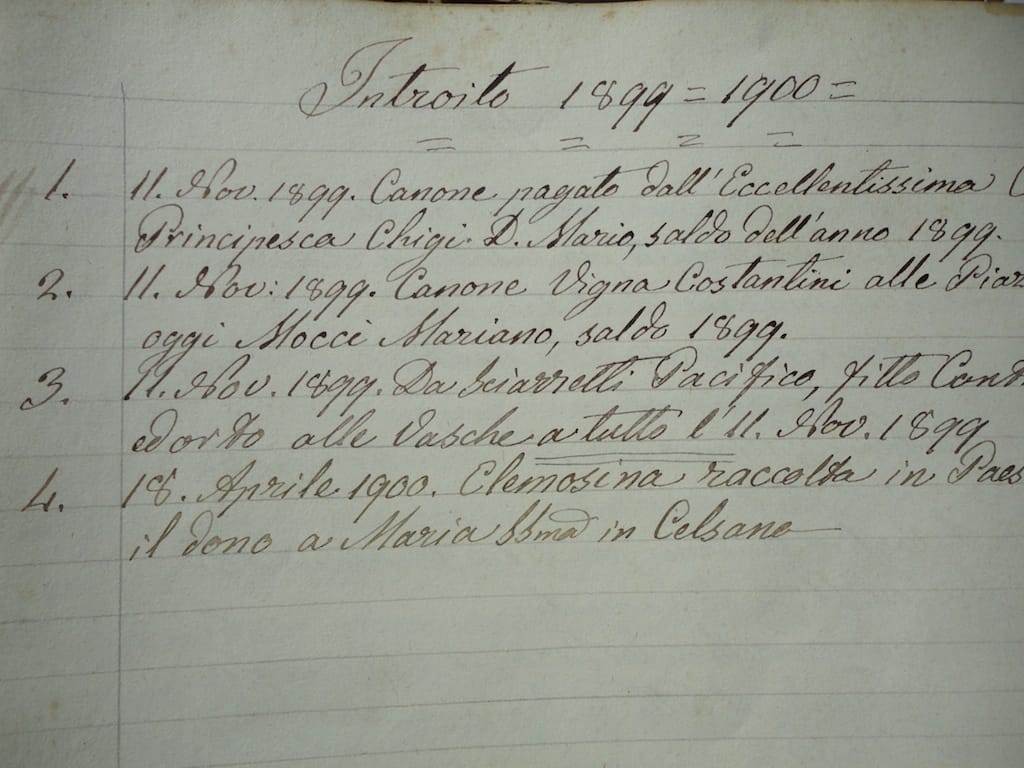 Introito 1899 = 1900 =
= = = =
1. 11. Nov. 1899. Canone pagato dall'Eccellentissima (
Principesca Chigi. D. Mario, saldo dell'anno 1899.
2. 11. Nov: 1899. Canone Vigna Costantini alle Piaz
oggi Mocci Mariano, saldo 1899.
3. 11. Nov. 1899. Da Sciarretti Pacifico, fitto Cant
ed orto alle Vasche a tutto l'11. Nov. 1899
4. 18. Aprile 1900. Elemosina raccolta in Paes
il dono a Maria SSma in Celsano